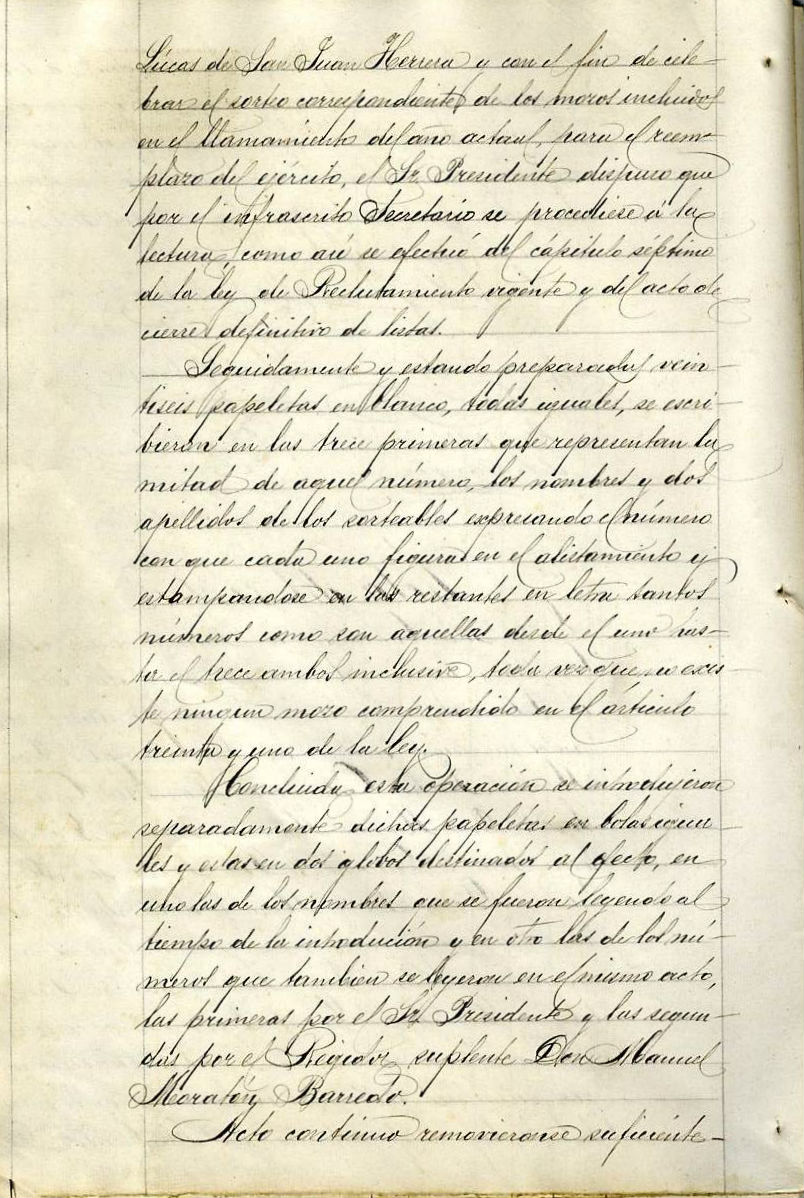 Lúcas de San Juan Herrera y con el fin de cele-
brar el sorteo correspondiente de los mozos incluidos
en el llamamiento del año actual, para el reem-
plazo del ejército, el Sr. Presidente dispuso que
por el infrascrito Secretario se procediese á la
lectura, como así se efectuó del cápitulo séptimo
de la ley de Reclutamiento vigente y del acto de
cierre definitivo de listas.
Seguidamente y estando preparadas vein-
tiseis papeletas en blanco, todas iguales, se escri-
bieron en las trece primeras que representan la
mitad de aquel número, los nombres y dos
apellidos de los sorteables expresando el número
con que cada uno figura en el alistamiento y
estampandose en las restantes en letra tantos
números como son aquellas desde el uno has-
ta el trece ambos inclusive, toda vez que no exis-
te ningun mozo comprendido en el árticulo
treinta y uno de la ley.
Concluida esta operación se introdujeron
separadamente dichas papeletas en bolas igua-
les y estas en dos globos destinados al efecto, en
uno las de los nombres que se fueron leyendo al
tiempo de la introdución y en otro las de los nú-
meros que tambien se leyeron en el mismo acto,
las primeras por el Sr. Presidente y las segun-
das por el Regidor suplente Don Manuel
Moratón Barredo.
Acto continuo removieronse suficiente-